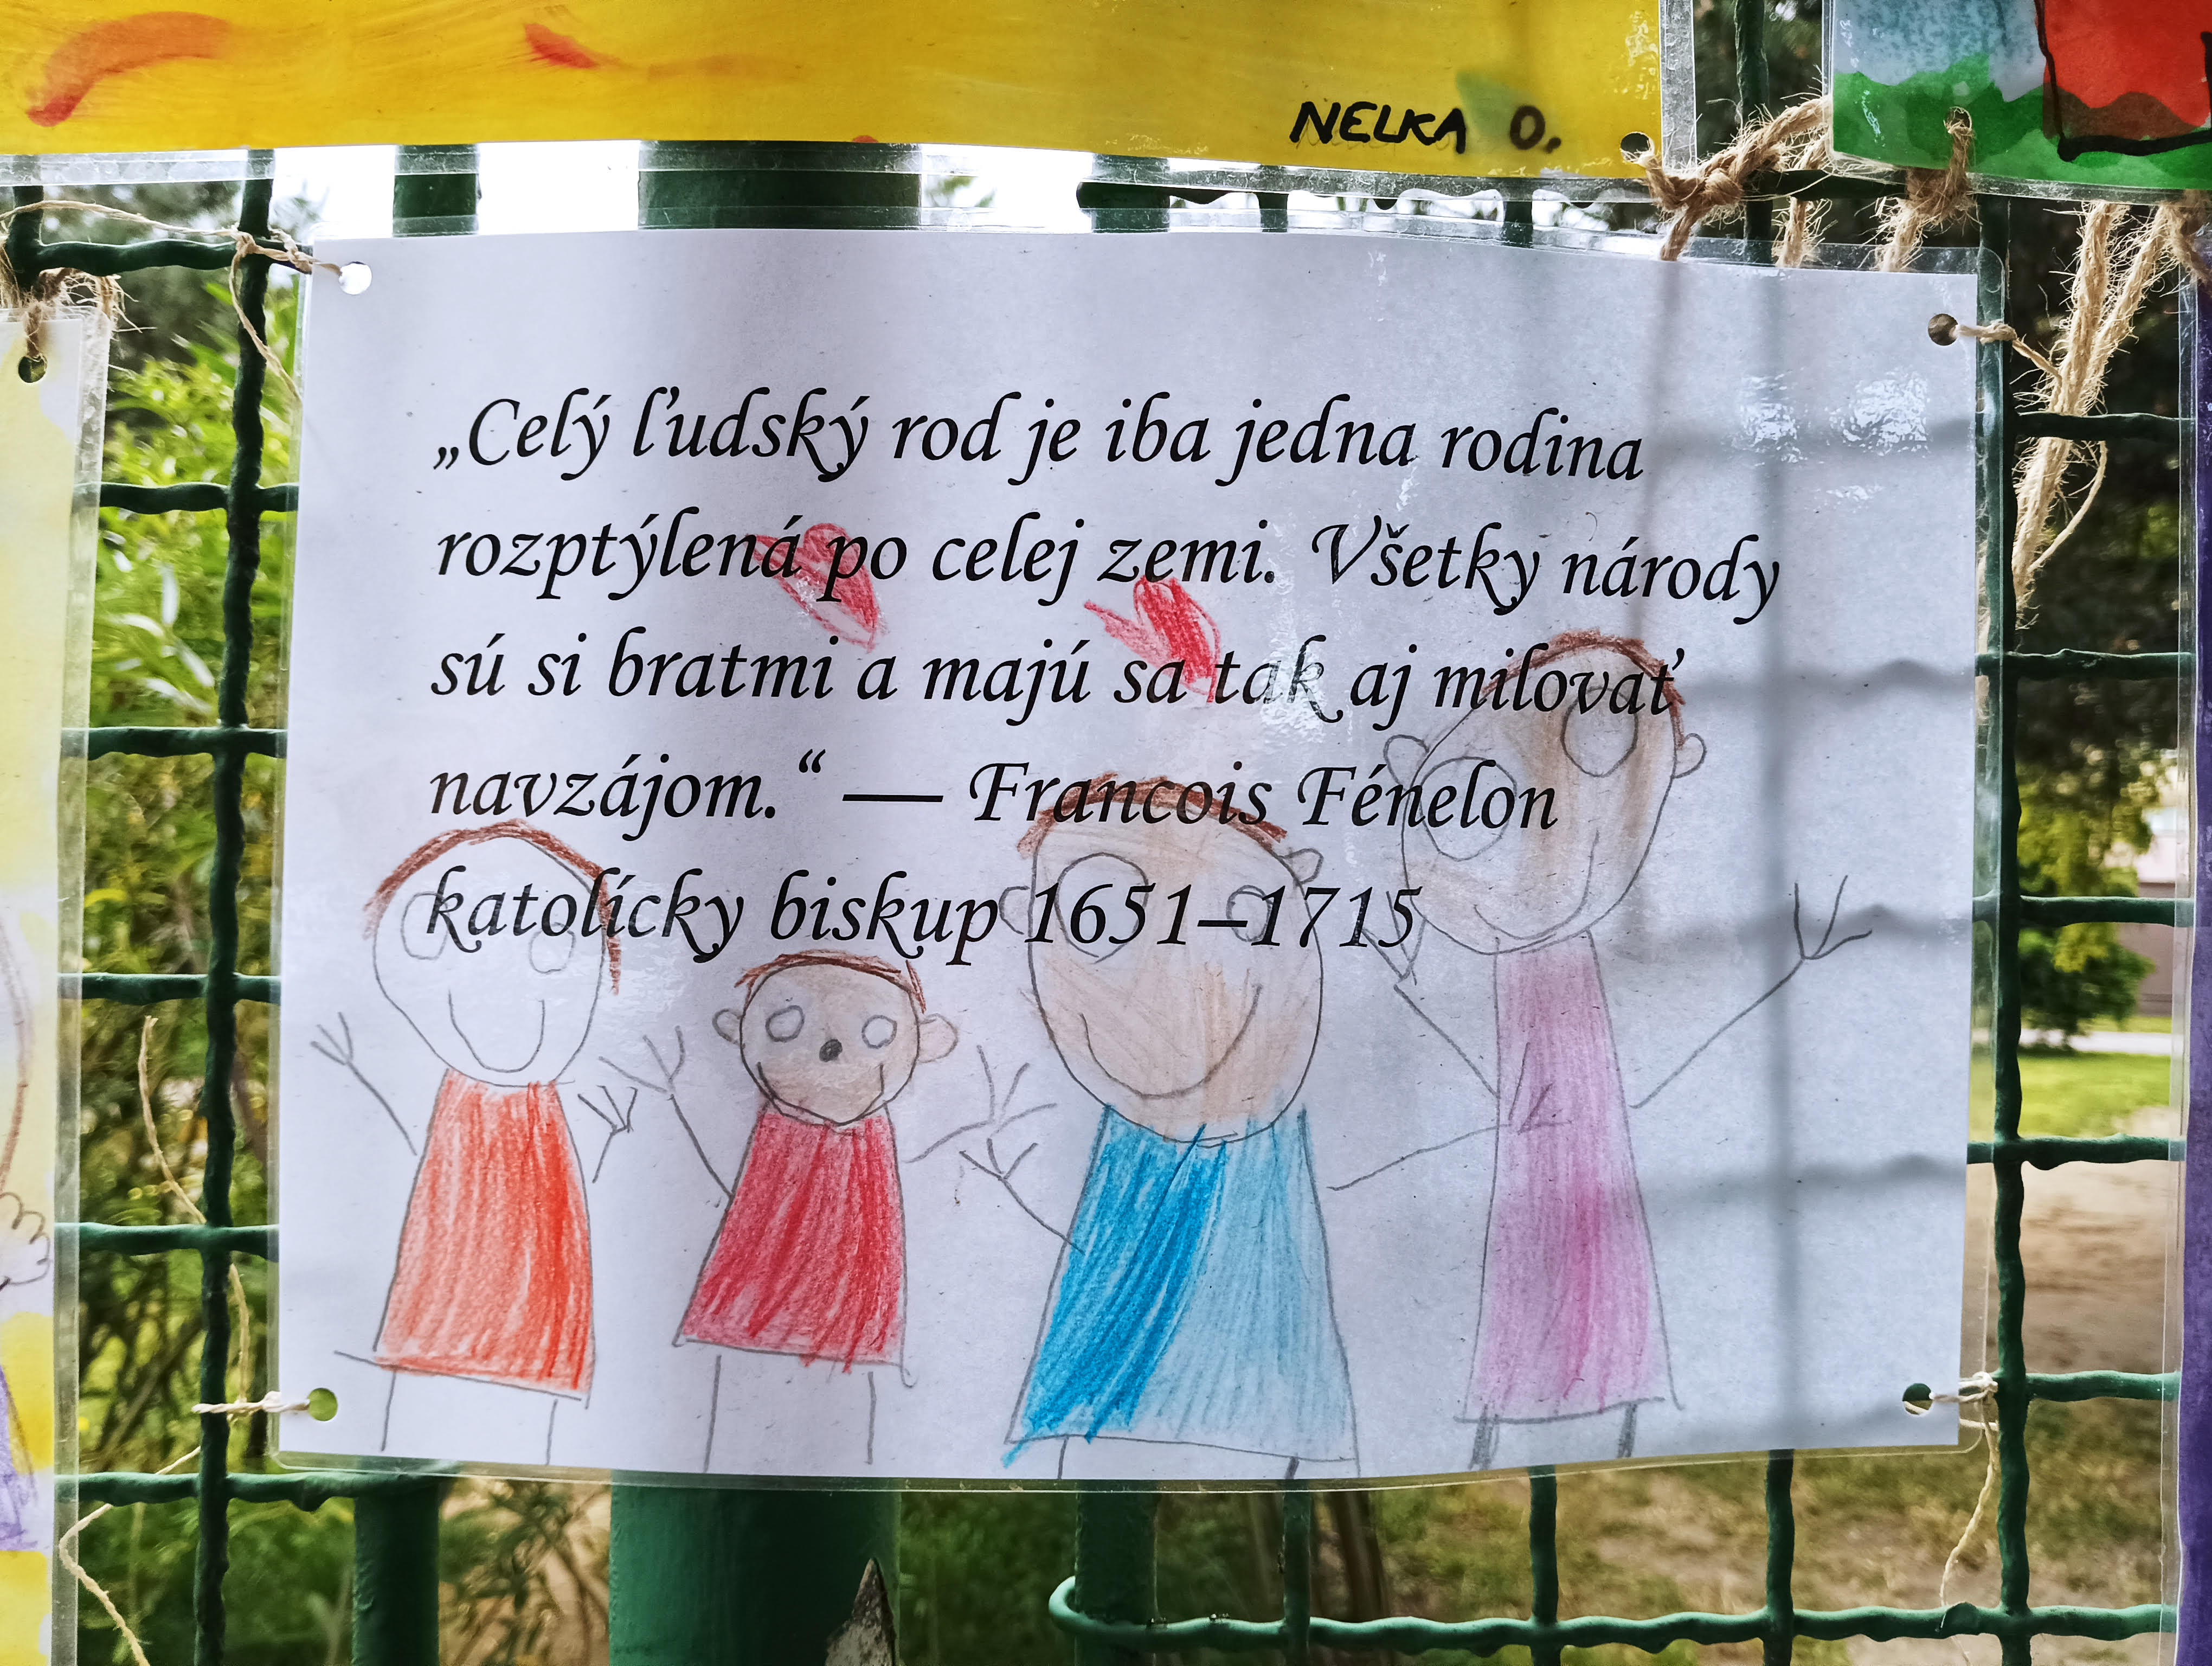 NELKA O.
„Celý ľudský rod je iba jedna rodina
rozptýlená po celej zemi. Všetky národy
sú si bratmi a majú sa tak aj milovať
navzájom.“ — Francois Fénelon
katolícky biskup 1651–1715